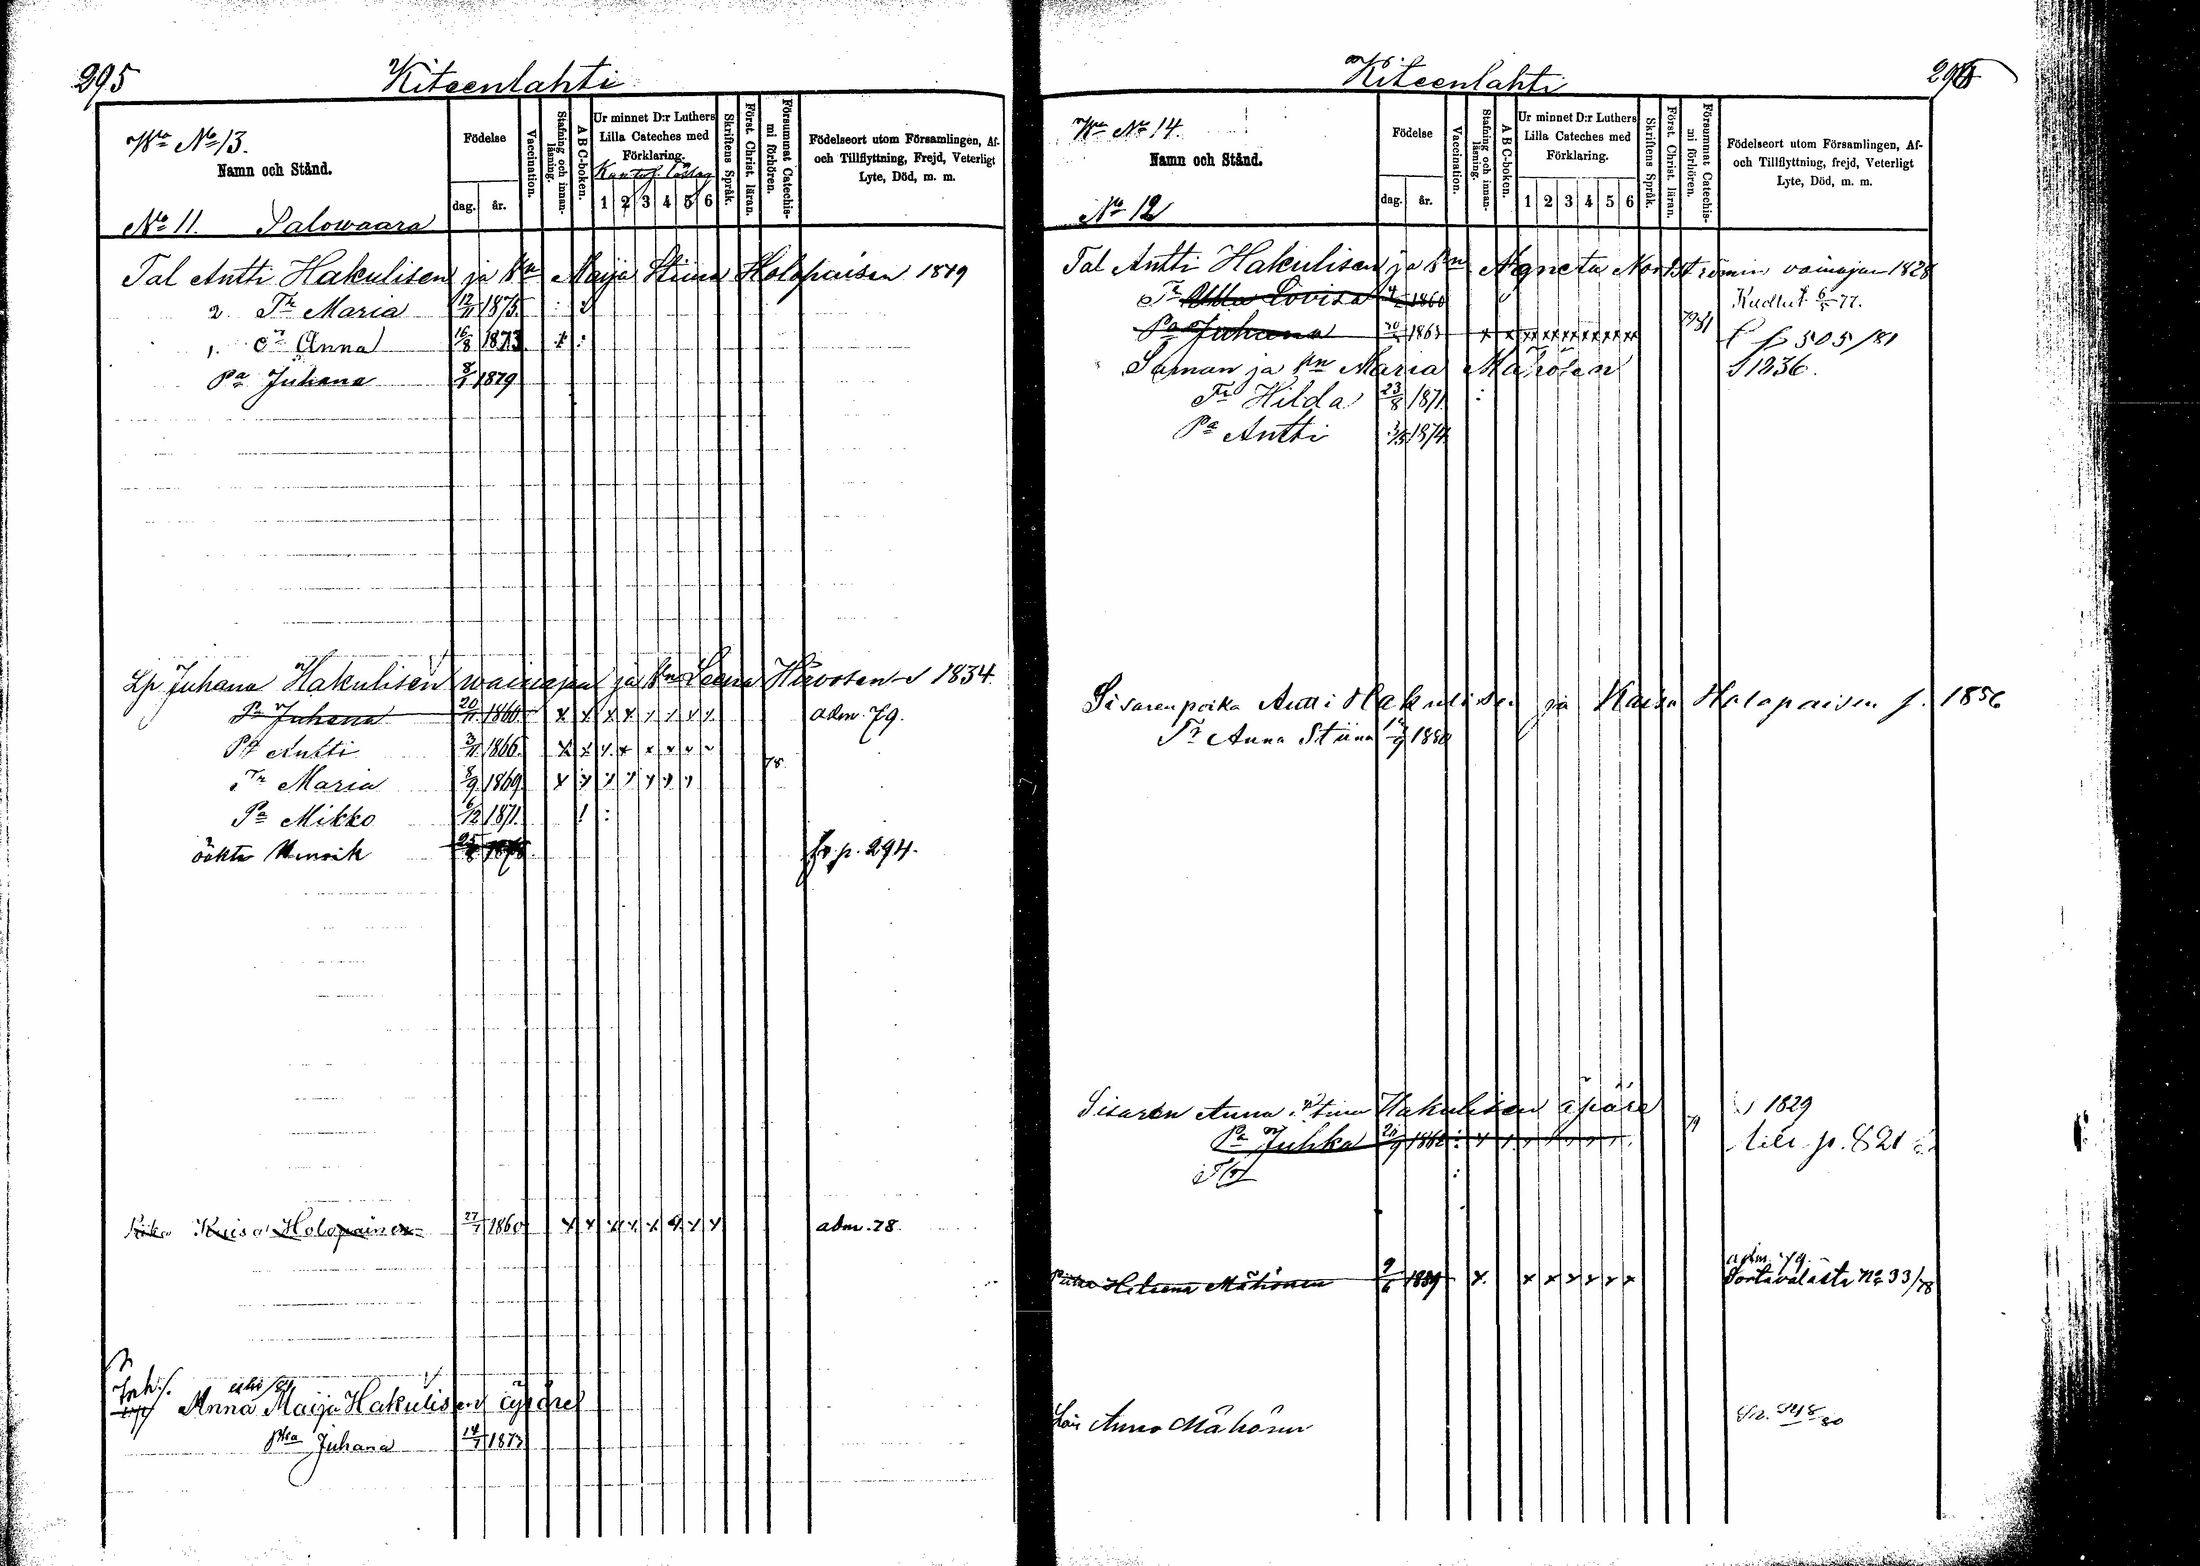 295
Kiteenlahti
Wa No 13.
Namn och Stånd.
No 11. Salowaara
Födelse
dag. år.
Vaccination.
Stafning och innanläsning.
A B C-boken.
Ur minnet D:r Luthers Lilla Cateches med Förklaring.
1 2 3 4 5 6
Skriftens Språk.
Först. Christ. läran.
Försummat Catechismi förhören.
Födelseort utom Församlingen, Af- och Tillflyttning, Frejd, Veterligt Lyte, Död, m. m.
Tal Antti Hakulisen ja Wa Maija Stiina Holopaisen 1849
2. Tr Maria 12/11 1875.
1. Tr Anna 16/8 1873
Pa Juhana 8/1 1879
Lp Juhana Hakulisen wainajan ja Wn Leena Hirvosen 1834.
Pa Juhana 20/11 1860 x x x x y y y y adm. 79.
Pa Antti 3/11 1866
78
Tr Maria 8/9 1869
Pa Mikko 6/12 1871
öäktr Henrik fr p. 294.
Piika Kaisa Holopainen 27/1 1860 adm. 78.
Inh.
Anna Maija Hakulisen äpäre
Pka Juhana 14/1 1873
Kiteenlahti
Wa No 14.
Namn och Stånd.
No 12
Födelse
dag. år.
Vaccination.
Stafning och innanläsning.
A B C-boken.
Ur minnet D:r Luthers Lilla Cateches med Förklaring.
1 2 3 4 5 6
Skriftens Språk.
Först. Christ. läran.
Försummat Catechismi förhören.
Födelseort utom Församlingen, Af- och Tillflyttning, frejd, Veterligt Lyte, Död, m. m.
Tal Antti Hakulisen ja Wn Agneta Nordströmin vainajan 1828
Tr Ulla Lovisa 1860 Kuollut 6/5 77.
Pa Juhana 1863 p 505/81
Saman ja Wn Maria Mähösen S 1836.
Tr Hilda 23/8 1871
Pa Antti 1874
Sisarenpoika Antti Hakulisen ja Kaisa Holopaisen f. 1856
Tr Anna Stiina 1880
Sisaren Anna Stina Hakulisen äpäre 1829
Pa Juhka 1862 79 p. 821
Piika Helena Mähönen 9/6 1859 adm. 79
Sortavalasta No 33/78
Lois Anna Mähönen